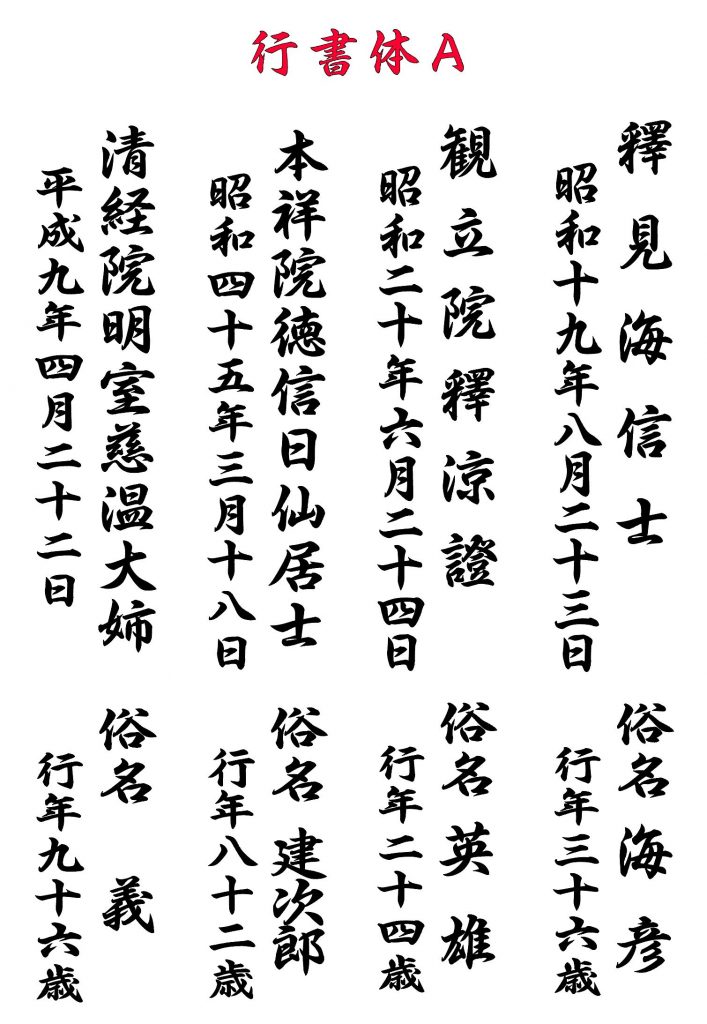 行書体A
釋見海信士
昭和十九年八月二十三日
俗名海彦
行年三十六歳
観立院釋涼證
昭和二十年六月二十四日
俗名英雄
行年二十四歳
本祥院徳信日仙居士
昭和四十五年三月十八日
俗名建次郎
行年八十二歳
清経院明室慈温大姉
平成九年四月二十二日
俗名義
行年九十六歳